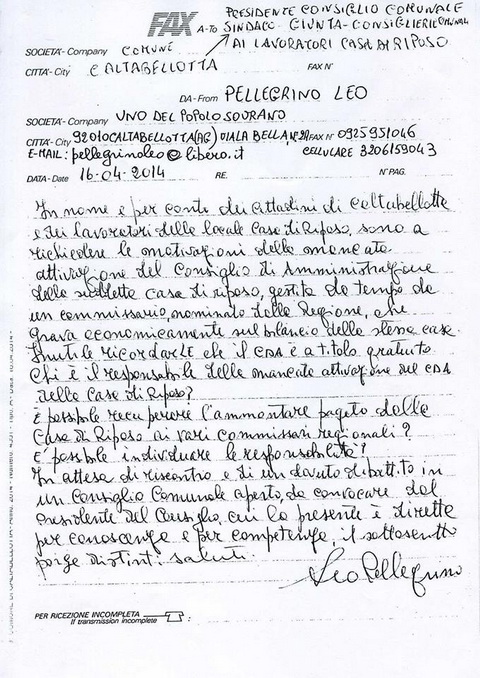 PRESIDENTE CONSIGLIO COMUNALE
FAX A-To SINDACO GIUNTA-CONSIGLIERI COMUNALI
SOCIETÀ-Company COMUNE AI LAVORATORI CASA DI RIPOSO
CITTÀ-City CALTABELLOTTA FAX N°
DA-From PELLEGRINO LEO
SOCIETÀ-Company UNO DEL POPOLO SOVRANO
CITTÀ-City 92010 CALTABELLOTTA (AG) VIALA BELLA, N.20 FAX N° 0925951046
E-MAIL: pellegrinoleo@libero.it CELLULARE 3206159043
DATA-Date 16-04-2014 RE. N° PAG.
In nome e per conto dei cittadini di Caltabellotta
e dei lavoratori della locale Casa di Riposo, sono a
richiedere le motivazioni della mancata
attivazione del Consiglio di Amministrazione
della suddetta casa di riposo, gestita da tempo da
un commissario, nominato dalla Regione, che
grava economicamente sul bilancio della stessa casa.
Inutile ricordarLe che il CDA è a titolo gratuito.
Chi è il responsabile della mancata attivazione del CDA
della Casa di Riposo?
È possibile recuperare l'ammontare pagato dalla
Casa di Riposo ai vari commissari regionali?
E' possibile individuare le responsabilità?
In attesa di riscontro e di un dovuto dibattito in
un Consiglio Comunale aperto, da convocare dal
Presidente del Consiglio, cui la presente è diretta
per conoscenza e per competenza, il sottoscritto
porge distinti saluti.
Leo Pellegrino
PER RICEZIONE INCOMPLETA
If transmission incomplete